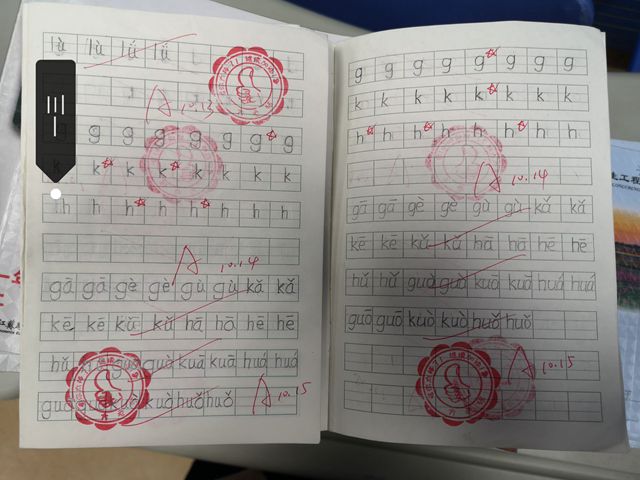 lǜ lǜ lǘ lǘ
A 10.13
g g g g g g g g
k k k k k k k k
h h h h h h h h
A 10.14
gā gā gè gè gù gù kǎ kǎ
kē kē kǔ kǔ hā hā hē hē
hǔ guà guà kuā kuā huá huá
guō kuò kuò huǒ huǒ
A 10.15
g g g g g g g g
k k k k k k k k
h h h h h h h h
A 10.14
gā gā gè gè gù gù kǎ kǎ
kē kē kǔ kǔ hā hā hē hē
hǔ hǔ guà guà kuā kuā huá huá
guō guō kuò kuò huǒ huǒ
A 10.15